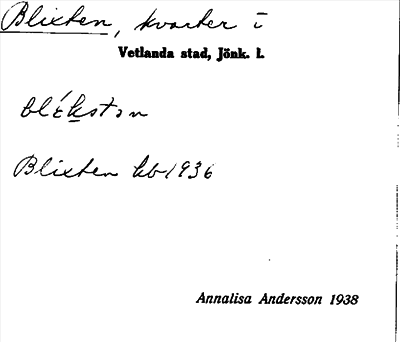 Blixten, kvarter i
Vetlanda stad, Jönk. l.
blɛ́kstən
Blixten kb 1936
Annalisa Andersson 1938